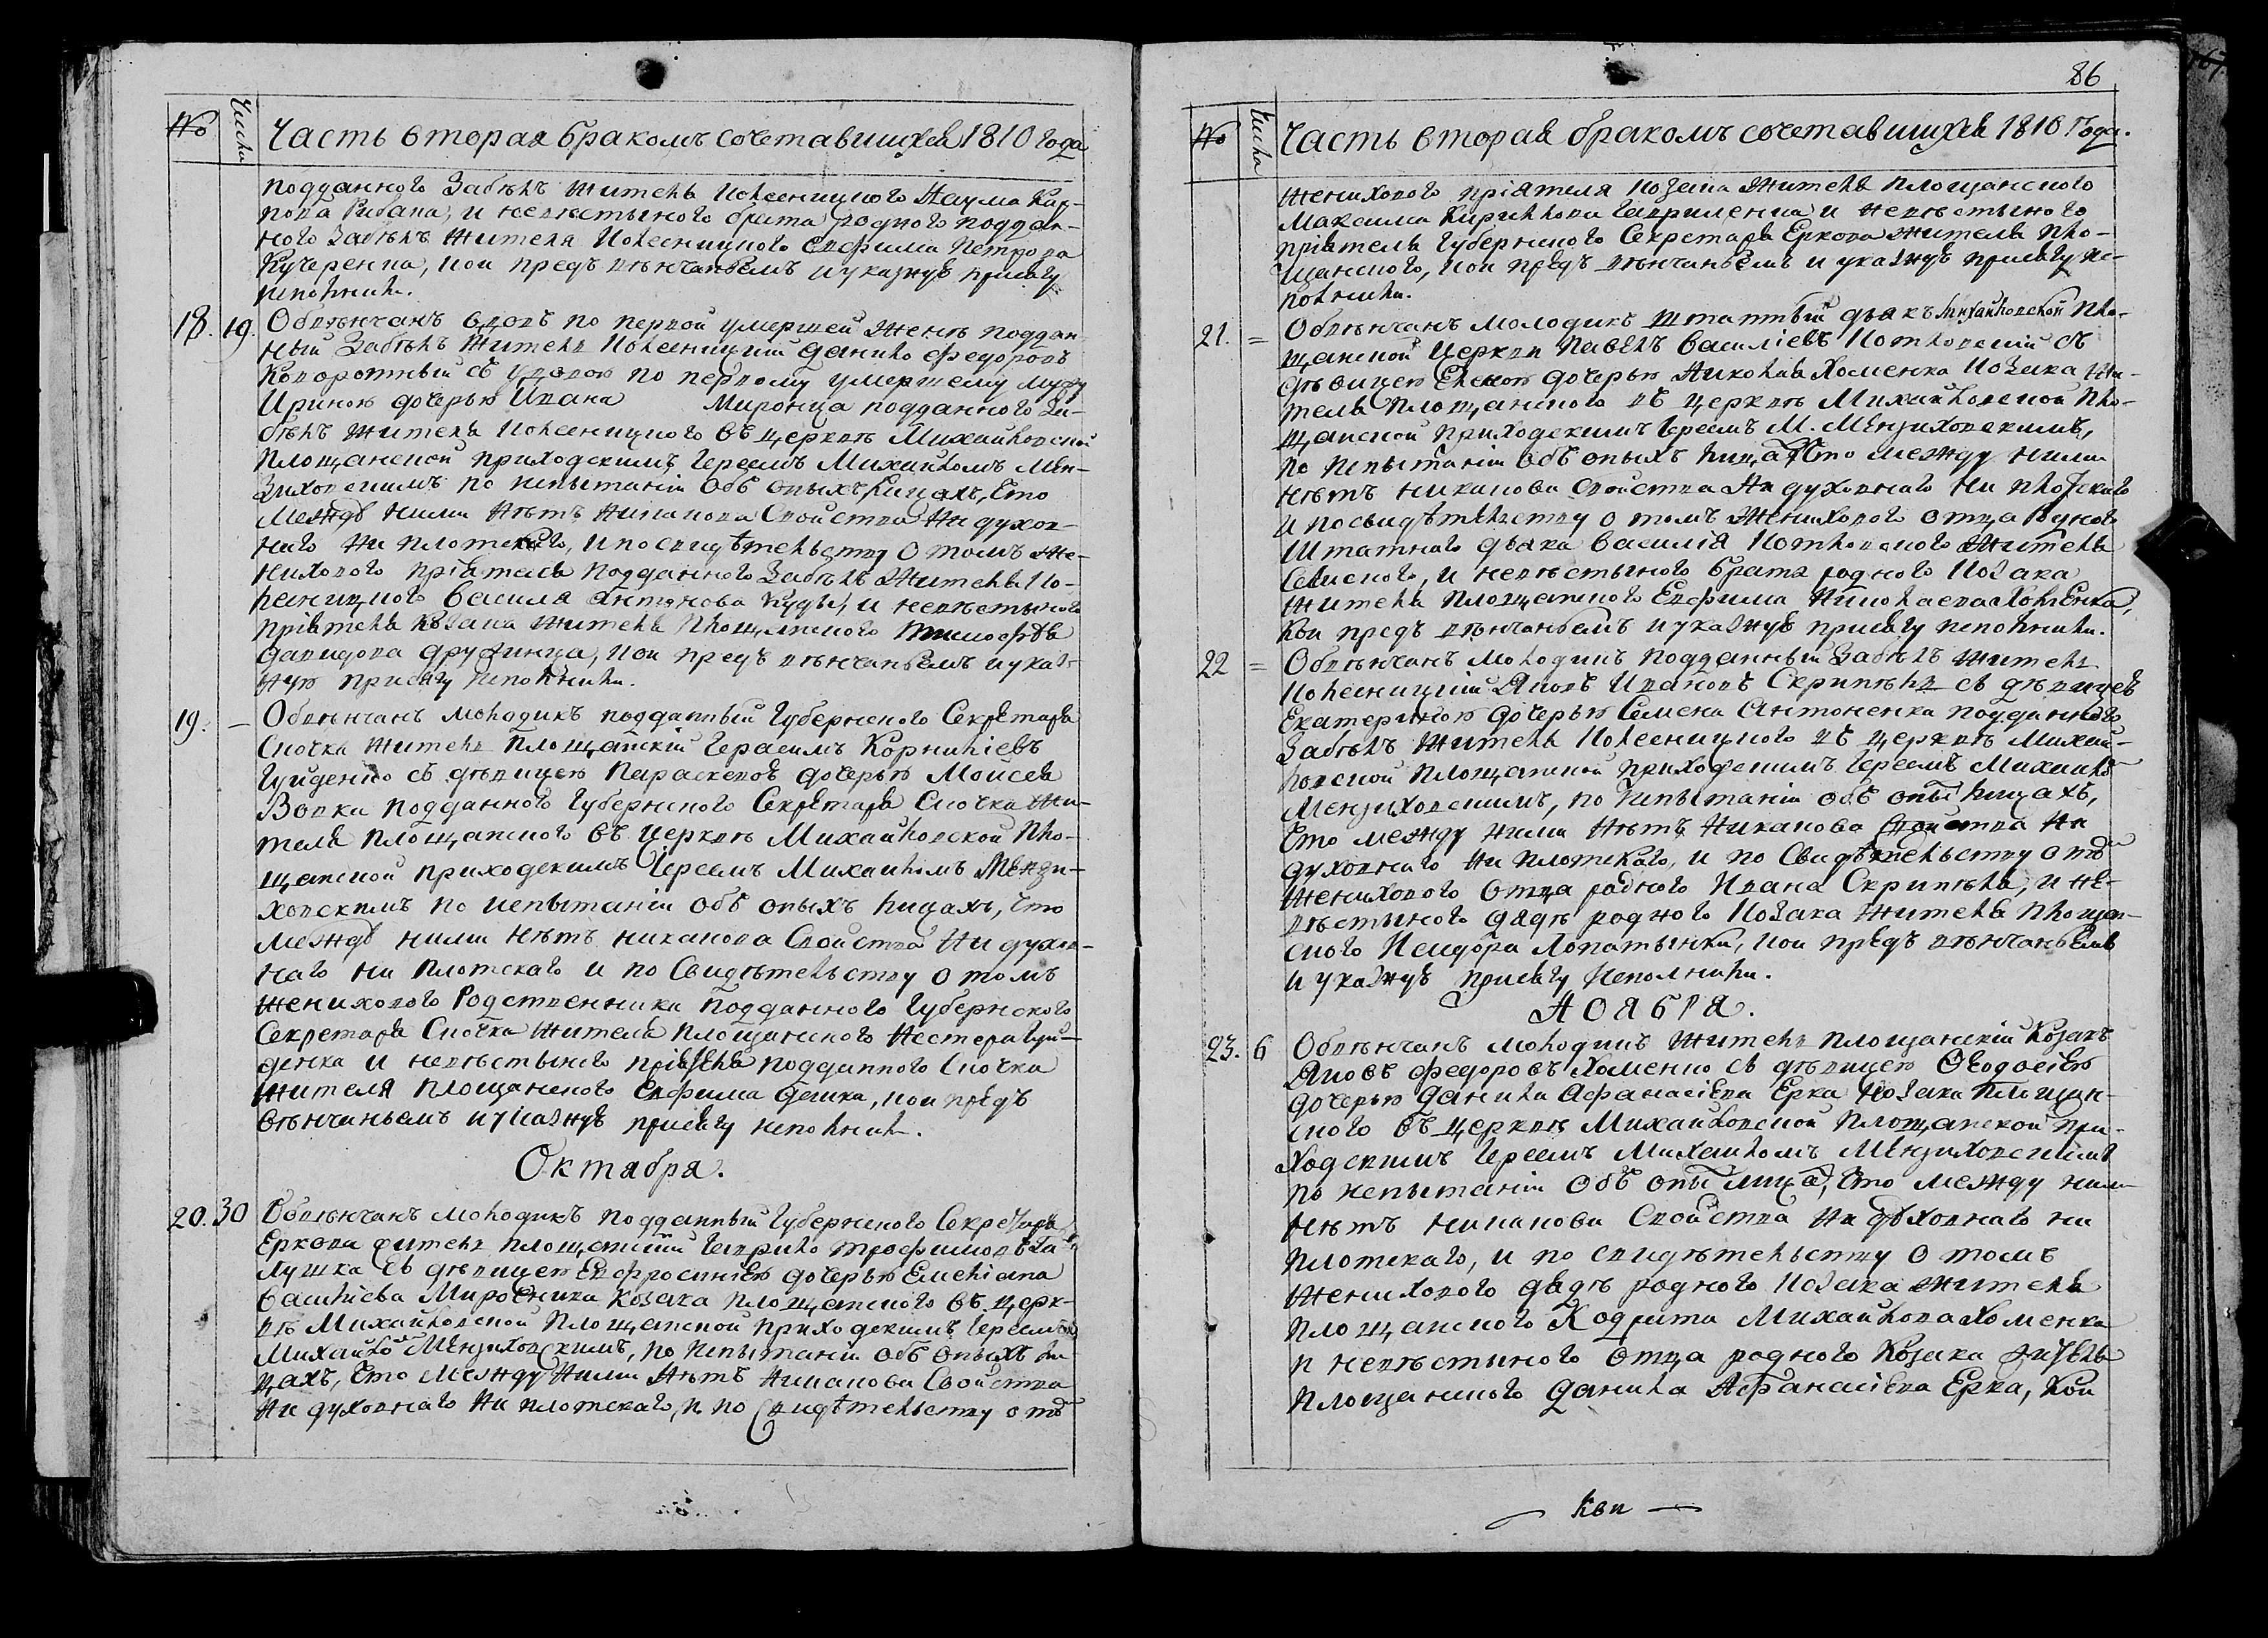 № Числа Часть вторая бракомъ сочетавшихся 1810 года
подданного Забѣлъ жителя Колесницкого Наума Кар-
пова Рибака, и невѣстыного брата родного поддан-
ного Забѣлъ жителя Колесницкого Евфима Петрова
Кучеренка, кои предъ вѣнчаньемъ и указную присягу
исполнили.
18. 19. Обвѣнчанъ вдовъ по первой умершей женѣ поддан-
ный Забѣлъ житель Колесницкій Данило Федоровъ
Коворотный съ удовою по первому умершему мужу
Ириною дочерью Ивана Миронца подданного За-
бѣлъ жителя Колесницкого въ церквѣ Михайловской
Площанской приходскимъ Іереемъ Михайломъ Мен-
зиховскимъ по испытаніи объ оныхъ лицахъ, что
между ними нѣтъ никакова свойства ни духов-
наго ни плотскаго, и по свидѣтельству о томъ же-
нихового пріятеля подданного Забѣлъ жителя Ко-
лесницкого Василя Антонова Куды, и невѣстыного
пріятеля козака жителя Площанского Тимофѣя
Давидова Дружинца, кои предъ вѣнчаньемъ и указ-
ную присягу исполнили.
19. — Обвѣнчанъ молодикъ подданный Губернского Секретаря
Сиочка житель Площанскій Герасимъ Корниліевъ
Гуйденко съ дѣвицею Параскевою дочерью Моисея
Вовки подданного Губернского Секретаря Сиочка жи-
теля Площанского въ церквѣ Михайловской Пло-
щанской приходскимъ Іереемъ Михайломъ Мензи-
ховскимъ по испытаніи объ оныхъ лицахъ, что
между ними нѣтъ никакова свойства ни духов-
наго ни плотскаго и по свидѣтельству о томъ
женихового родственника подданного Губернского
Секретаря Сиочка жителя Площанского Нестера Гуй-
денка и невѣстыного пріятеля подданного Сиочка
жителя Площанского Евфима Дешка, кои предъ
вѣнчаньемъ и указную присягу исполнили.
Октября.
20. 30 Обвѣнчанъ молодикъ подданный Губернского Секретаря
Еркова житель Площанскій Гаврило Трофимовъ Га-
лушка съ дѣвицею Евфросиніею дочерью Емеліана
Василіева Мирошника козака Площанского въ церк-
вѣ Михайловской Площанской приходскимъ Іереемъ
Михайло Мензиховскимъ, по испытаніи объ оныхъ ли-
цахъ, что между ними нѣтъ никакова свойства
ни духовнаго ни плотскаго, и по свидѣтельству о то
86
№ Числа Часть вторая бракомъ сочетавшихся 1810 года.
женихового пріятеля козака жителя Площанского
Максима Кирилова Гавриленка и невѣстыного
пріятеля Губернского Секретаря Еркова жителя Пло-
щанского, кои предъ вѣнчаньемъ и указную присягу ис-
полнили.
21. = Обвѣнчанъ молодикъ штатный дьякъ Михайловской Пло-
щанской церкви Павелъ Василіевъ Котковскій съ
дѣвицею Еленою дочерью Николая Хоменка козака жи-
теля Площанского въ церквѣ Михайловской Пло-
щанской приходскимъ Іереемъ М. Мензиховскимъ,
по испытаніи объ оныхъ лица, что между ними
нѣтъ никакова свойства ни духовнаго ни плотскаго
и по свидѣтельству о томъ женихового отца родного
штатнаго дьяка Василія Котковского жителя
, и невѣстыного брата родного козака
жителя Площанского Евфима Николаева Хоменка,
кои предъ вѣнчаньемъ и указную присягу исполнили.
22 = Обвѣнчанъ молодикъ подданный Забѣлъ житель
Колесницкій Яковъ Ивановъ Скрипѣль съ дѣвицею
Екатериною дочерью Семена Антоненка подданного
Забѣлъ жителя Колесницкого въ церквѣ Михай-
ловской Площанской приходскимъ Іереемъ Михайло
Мензиховскимъ, по испытаніи объ оны лицахъ,
что между ними нѣтъ никакова свойства ни
духовнаго ни плотскаго, и по свидѣтельству о то
женихового отца родного Ивана Скрипѣля, и не-
вѣстыного дядѣ родного козака жителя Площан-
ского Исидора Лопатынки, кои предъ вѣнчаньемъ
и указную присягу исполнили.
Ноября.
23. 6 Обвѣнчанъ молодикъ житель Площанскій козакъ
Яковъ Федоровъ Хоменко съ дѣвицею Феодосіею
дочерью Данила Афанасіева Ерка козака Площан-
ского въ церквѣ Михайловской Площанской при-
ходскимъ Іереемъ Михайломъ Мензиховскимъ
по испытаніи объ оны лица, что между ними
нѣтъ никакова свойства ни духовнаго ни
плотскаго, и по свидѣтельству о томъ
женихового дядѣ родного козака жителя
Площанского Кодрата Михайлова Хоменка
и невѣстыного отца родного козака жителя
Площанского Данила Афанасіева Ерка, кои
— кои —